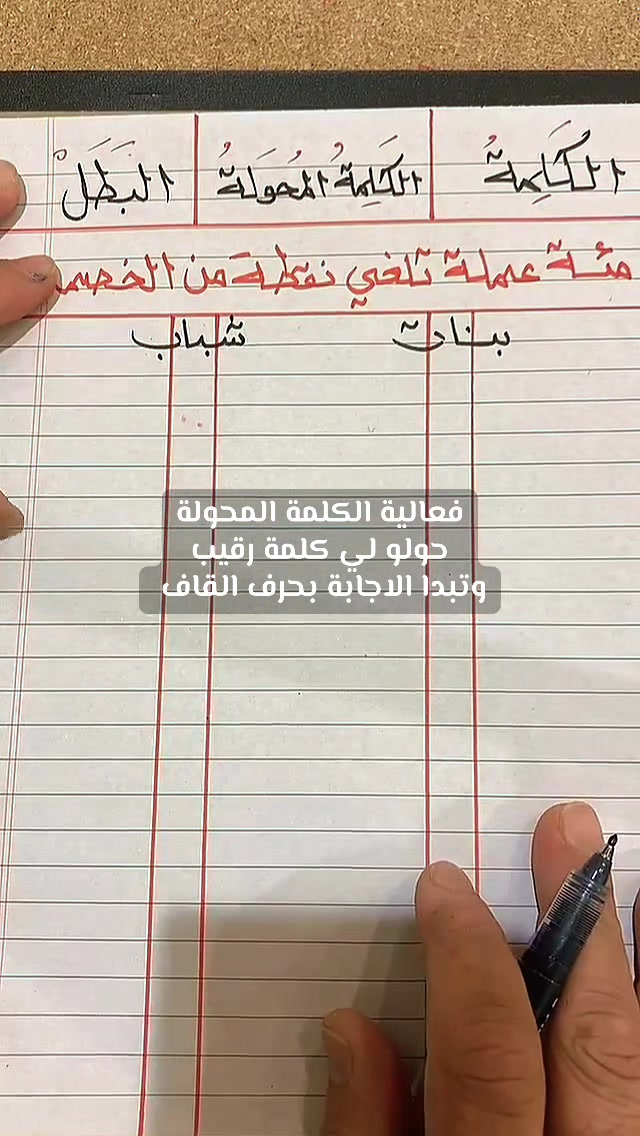 الكَلِمةُ الكَلِمةُ المُحَولةُ البَطَلْ
مئة عملة تلغي نقطة من الخصم
بنات شباب
فعالية الكلمة المحولة
حولو لي كلمة رقيب
وتبدا الاجابة بحرف القاف